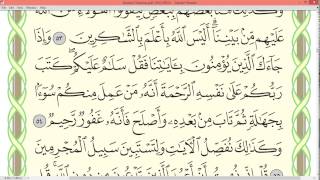 عَلَيْهِم مِّنۢ بَيْنِنَآ أَلَيْسَ ٱللَّهُ بِأَعْلَمَ بِٱلشَّٰكِرِينَ ٥٣ وَإِذَا
جَآءَكَ ٱلَّذِينَ يُؤْمِنُونَ بِـَٔايَٰتِنَا فَقُلْ سَلَٰمٌ عَلَيْكُمْ كَتَبَ
رَبُّكُمْ عَلَىٰ نَفْسِهِ ٱلرَّحْمَةَ أَنَّهُۥ مَنْ عَمِلَ مِنكُمْ سُوٓءًۢا
بِجَهَٰلَةٍ ثُمَّ تَابَ مِنۢ بَعْدِهِۦ وَأَصْلَحَ فَأَنَّهُۥ غَفُورٌ رَّحِيمٌ ٥٤
وَكَذَٰلِكَ نُفَصِّلُ ٱلْءَايَٰتِ وَلِتَسْتَبِينَ سَبِيلُ ٱلْمُجْرِمِينَ